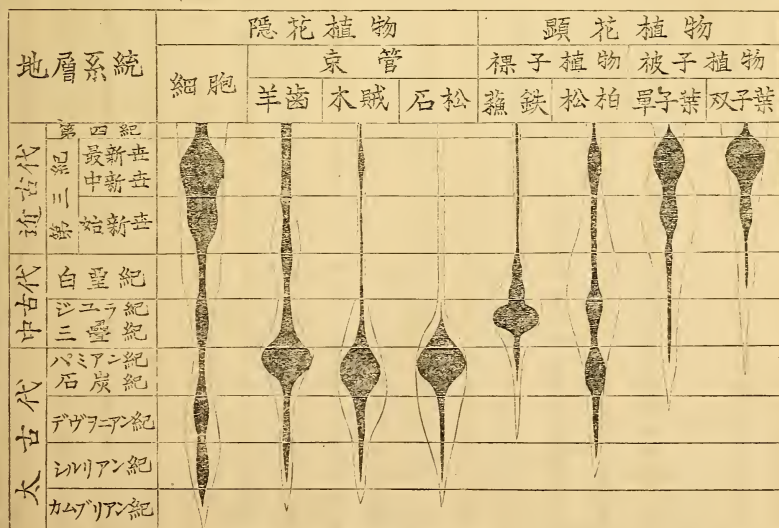 隠花植物 顕花植物
地層系統
細胞 京管 裸子植物 被子植物
羊歯 木賊 石松 蘓鉄 松柏 單子葉 双子葉
近古代
第四紀
第三紀
最新世
中新世
始新世
中古代
白堊紀
ジユラ紀
三疊紀
太古代
パミアン紀
石炭紀
デヴヲニアン紀
シルリアン紀
カムブリアン紀